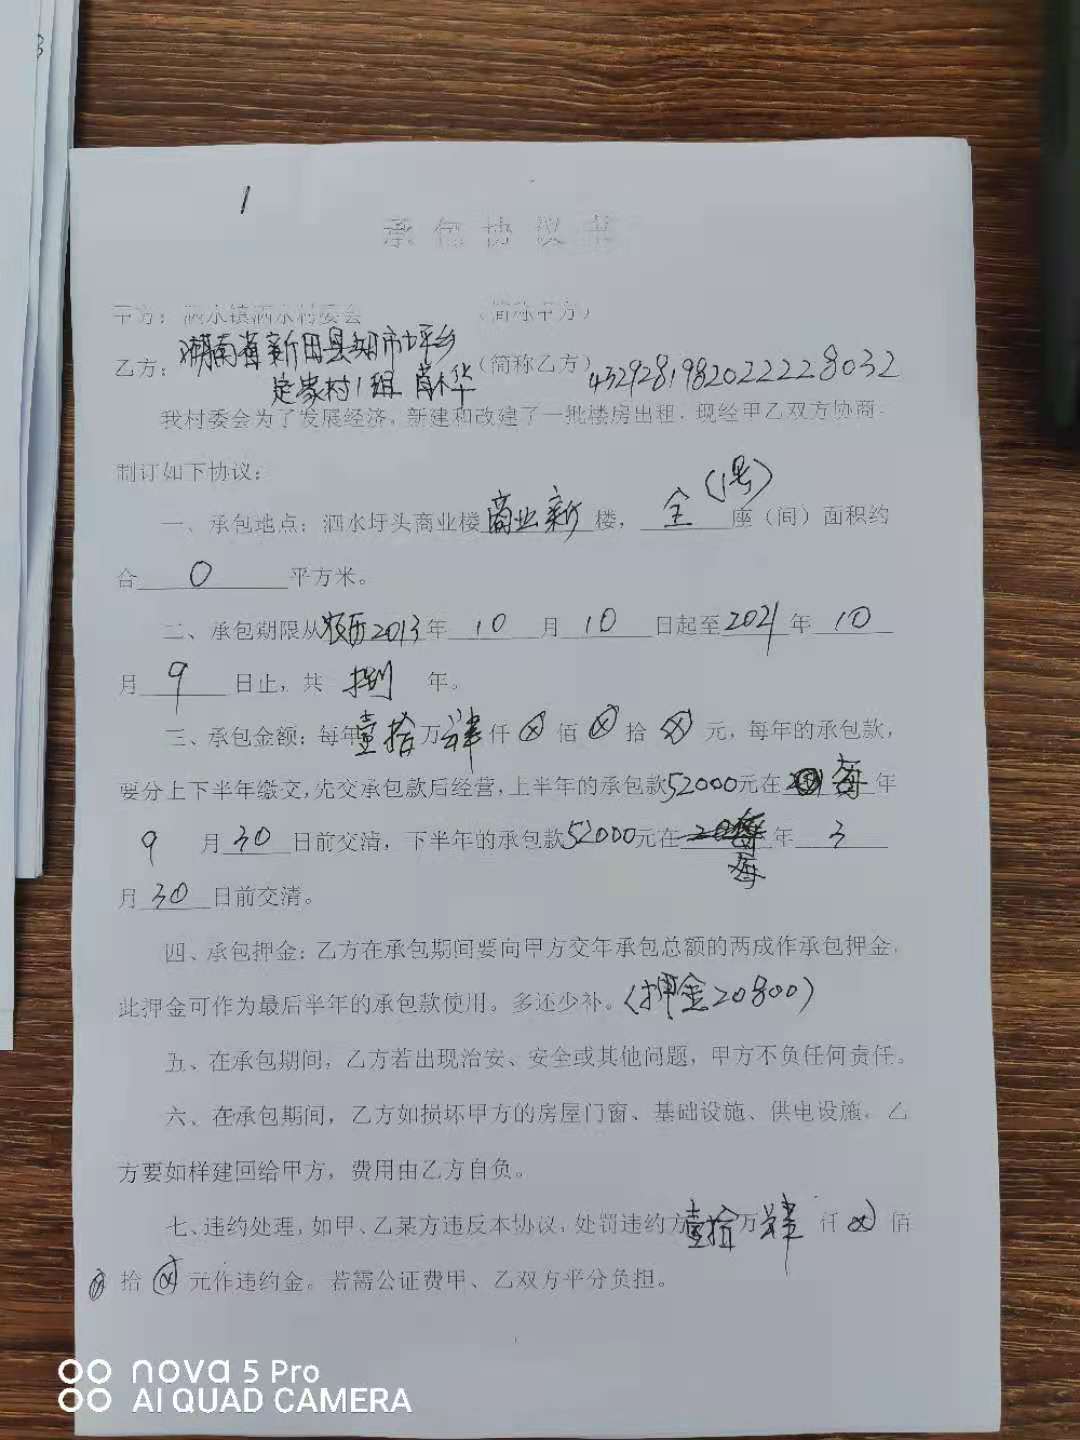 1
承包协议书
甲方：泗水镇泗水村委会（简称甲方）
乙方：湖南省新田县知市坪乡（简称乙方）432928198202228032
定家村1组 肖华
我村委会为了发展经济，新建和改建了一批楼房出租，现经甲乙双方协商，
制订如下协议：
一、承包地点：泗水圩头商业楼商业新楼，全（1号）座（间）面积约
合0平方米。
二、承包期限从农历2013年10月10日起至2021年10
月9日止，共捌年。
三、承包金额：每年壹拾万肆仟⊗佰⊗拾⊗元，每年的承包款，
要分上下半年缴交，先交承包款后经营，上半年的承包款52000元在每年
9月30日前交清，下半年的承包款52000元在每年3
月30日前交清。
四、承包押金：乙方在承包期间要向甲方交年承包总额的两成作承包押金，
此押金可作为最后半年的承包款使用。多还少补。（押金20800）
五、在承包期间，乙方若出现治安、安全或其他问题，甲方不负任何责任。
六、在承包期间，乙方如损坏甲方的房屋门窗、基础设施、供电设施，乙
方要如样建回给甲方，费用由乙方自负。
七、违约处理，如甲、乙某方违反本协议，处罚违约方壹拾万肆仟⊗佰
⊗拾⊗元作违约金。若需公证费甲、乙双方平分负担。
nova 5 Pro
AI QUAD CAMERA